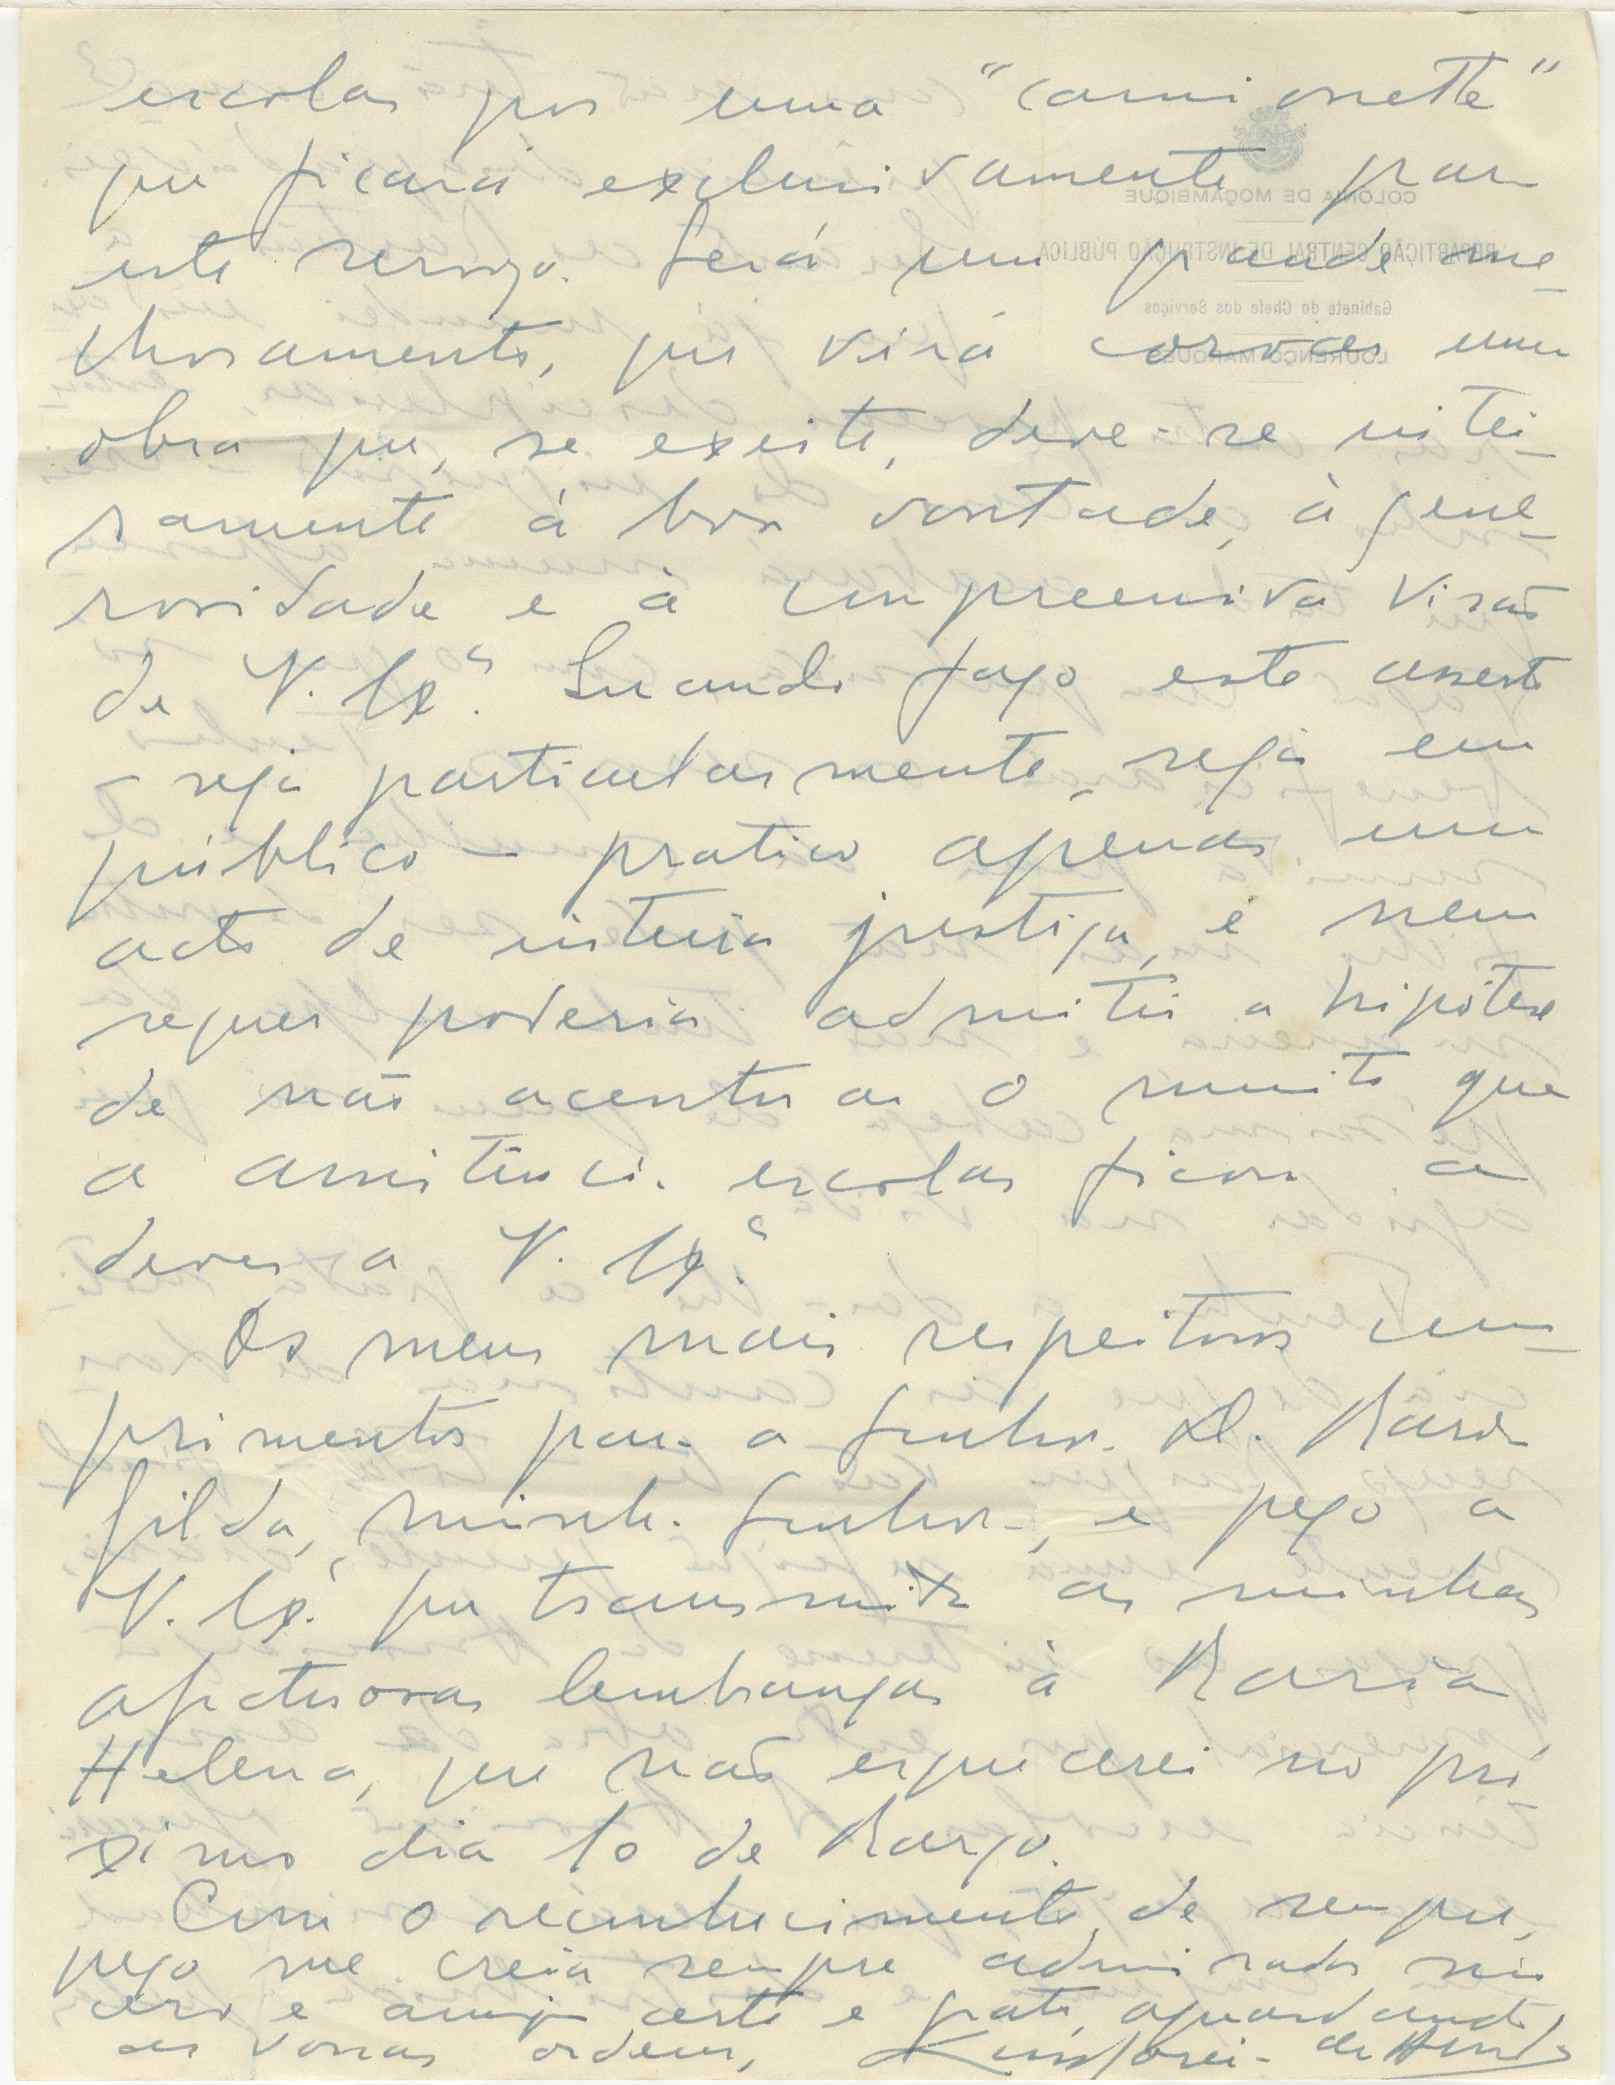 escolar por uma "camionette"
que ficará exclusivamente para
este serviço. Será um grande me-
lhoramento, que virá coroar uma
obra que, se existe, deve-se intei-
ramente à boa vontade, à gene-
rosidade e à compreensiva visão
de V. Exª. Quando faço este asserto
– seja particularmente, seja em
público – pratico apenas um
acto de inteira justiça, e nem
sequer poderia admitir a hipótese
de não acentuar o muito que
a assistência escolar ficou a
dever a V. Exª.
Os meus mais respeitosos cum-
primentos para a Senhora D. Maria
Gilda, minha Senhora, e peço a
V. Exª que transmita as minhas
afectuosas lembranças à Maria
Helena, que não esquecerei no pró-
ximo dia 10 de Março.
Com o reconhecimento de sempre,
peço me creia sempre admirador sin
cero e amigo certo e grato, aguardando
as vossas ordens,
COLÓNIA DE MOÇAMBIQUE
REPARTIÇÃO CENTRAL DE INSTRUÇÃO PÚBLICA
Gabinete do Chefe dos Serviços
LOURENÇO MARQUES